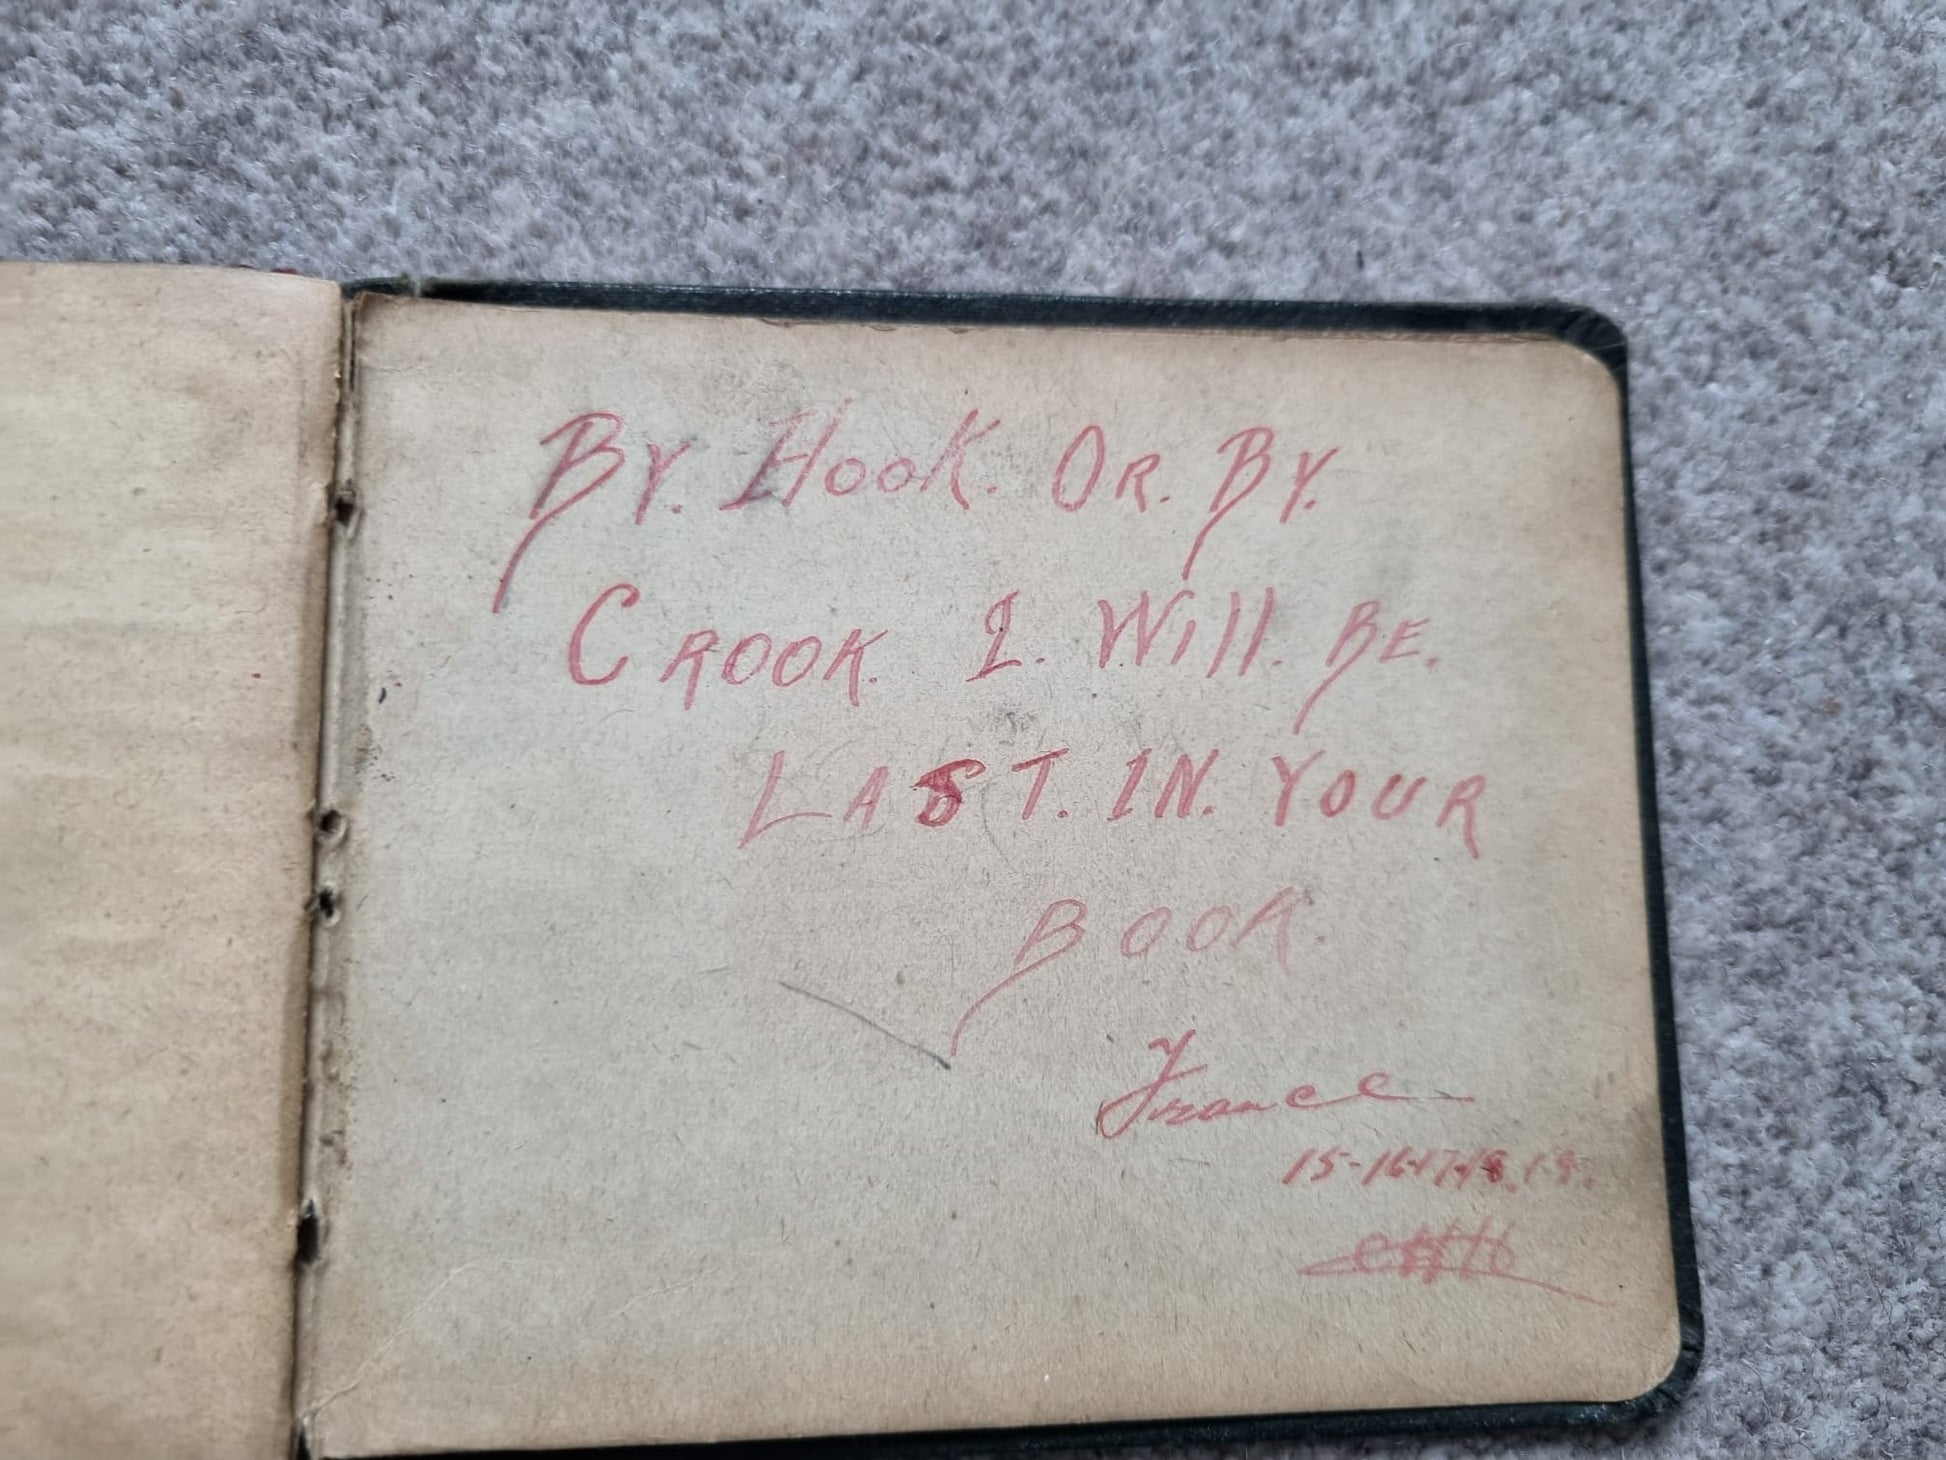 By. Hook. Or. By.
Crook. I. Will. Be.
Last. In. Your
Book.
France
15-16-17-18.19.